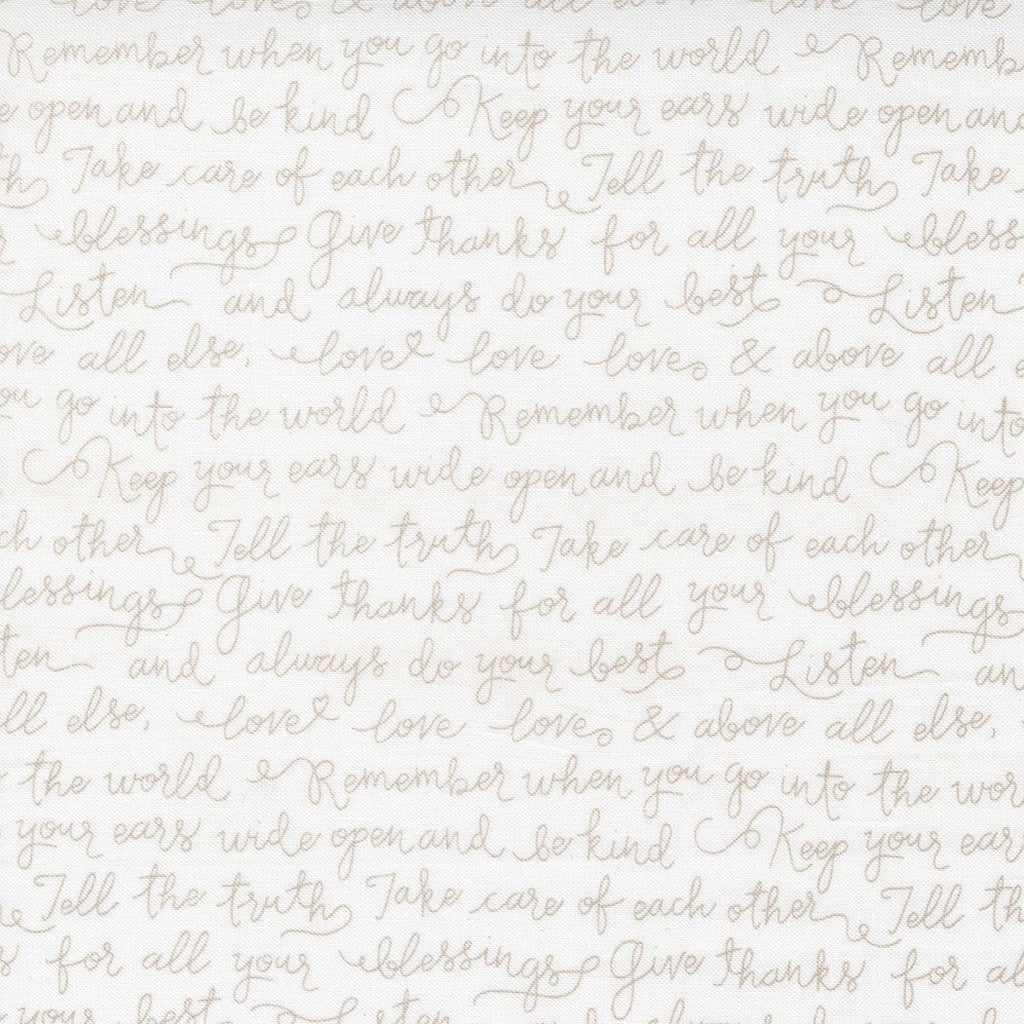 love love & above all else, love love
Remember when you go into the world Rememb
e open and be kind Keep your ears wide open and
th Take care of each other Tell the truth Take
r blessings Give thanks for all your bless
Listen and always do your best Listen
ove all else, love love love & above all e
ou go into the world Remember when you go into
Keep your ears wide open and be kind Keep
ch other Tell the truth Take care of each other
lessings Give thanks for all your blessings
ten and always do your best Listen an
ll else, love love love & above all else,
the world Remember when you go into the wor
your ears wide open and be kind Keep your ear
Tell the truth Take care of each other Tell th
s for all your blessings Give thanks for al
your best Listen and always do your best